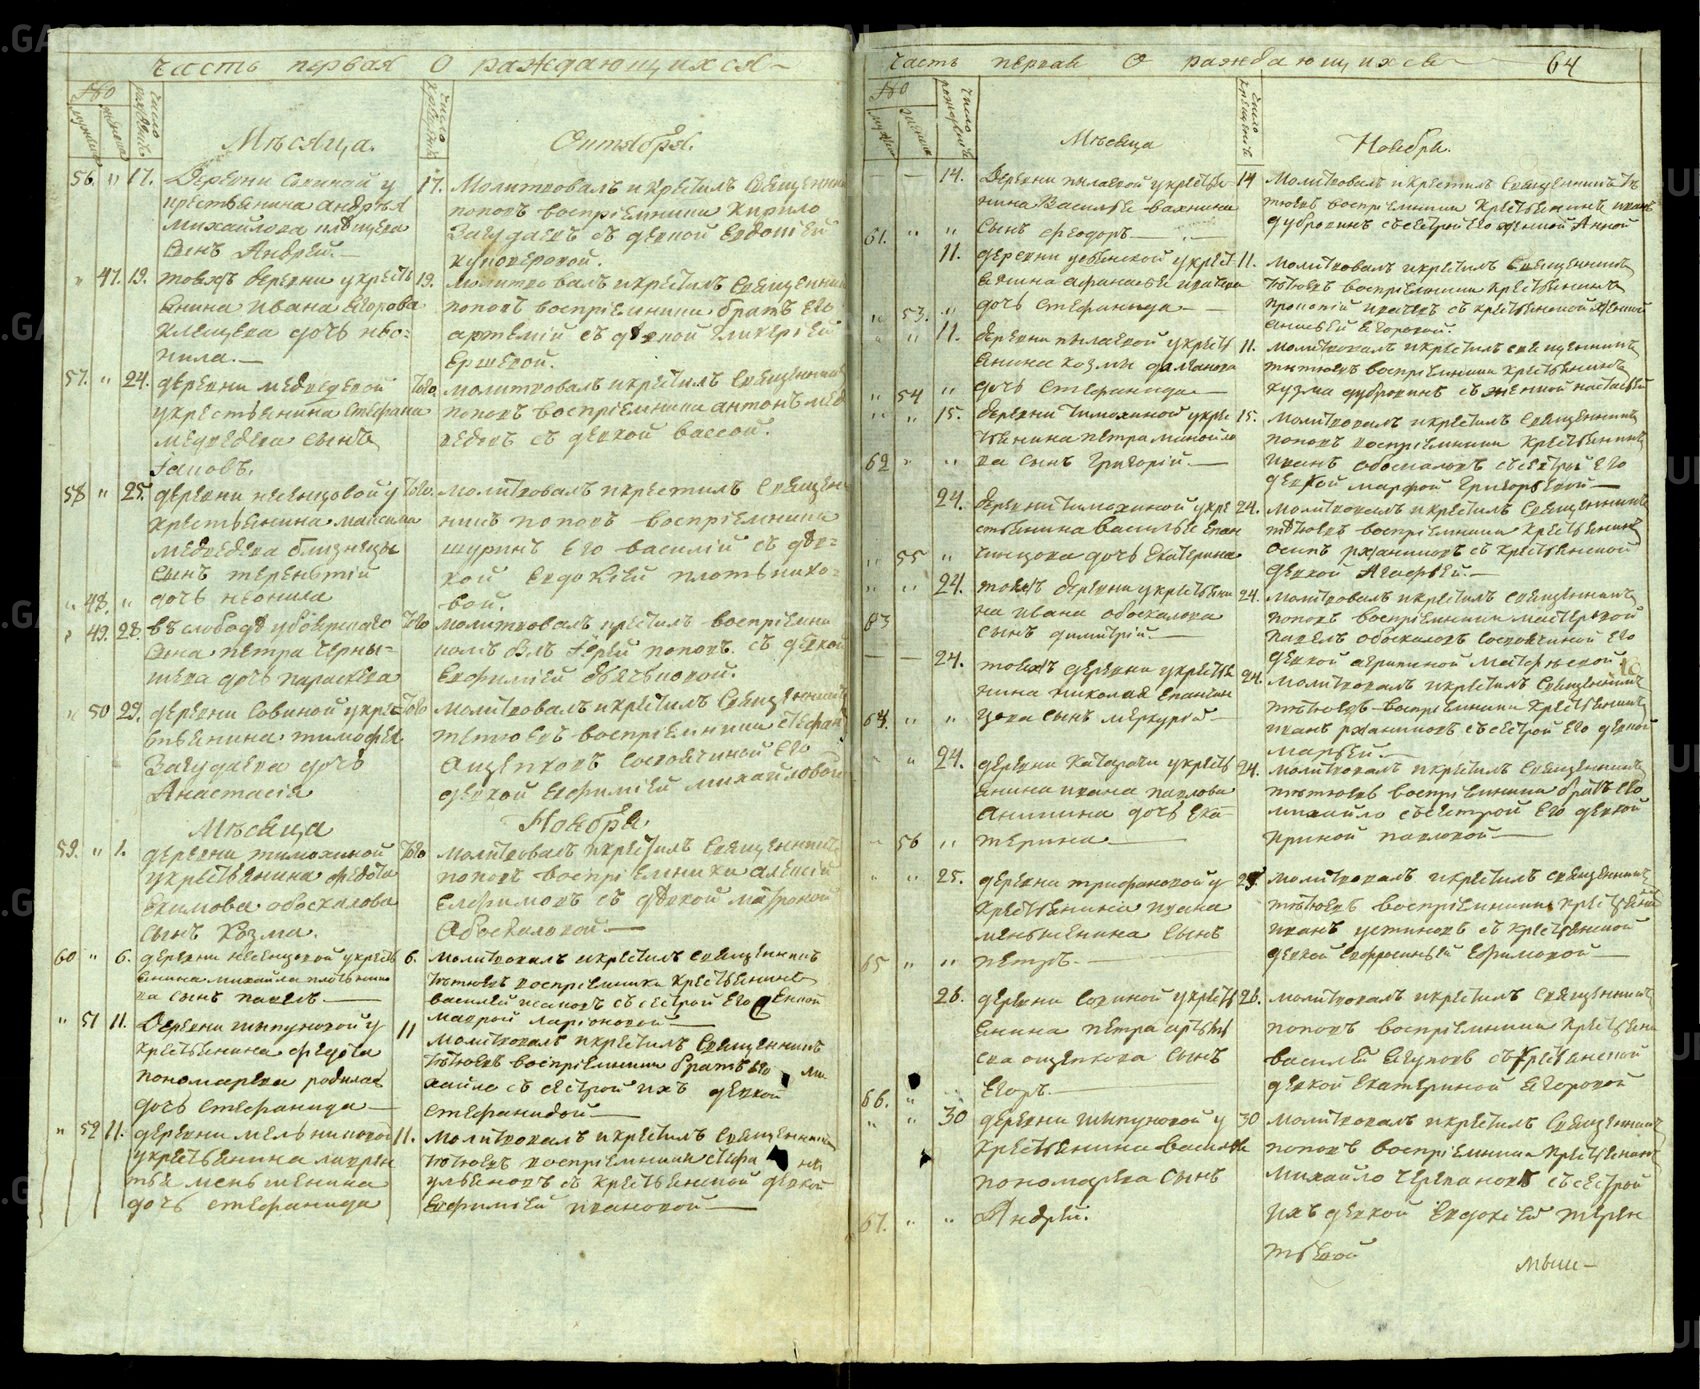 часть первая о раждающихся
№
мужеска
женска
число рождения
число крещения
Мѣсяца.
Октября.
56. " 17.
Деревни Совиной у
крестьянина Андрея
Михайлова
сынъ Андрей.
17.
Молитвовалъ и крестилъ Священникъ
поповъ воспріемники Кирило
Загудаевъ съ девкой Евдокіей
" 47. 19.
товжъ деревни у кресть
янина Ивана Егорова
Клещева дочь Нео-
нила.
19.
молитвовалъ и крестилъ Священникъ
поповъ воспріемники братъ его
Артемій съ девкой Гликеріей
Ершевой.
57. " 24.
деревни медведевой
у крестьянина Стефана
медведева сынъ
Іаковъ.
Того
молитвовалъ и крестилъ Священникъ
поповъ воспріемники Антонъ мед
ведевъ съ девкой Вассой.
58 " 25.
крестьянина максима
медведева близнецы
сынъ терентій
Того.
молитвовалъ и крестилъ Священ
никъ поповъ воспріемники
шуринъ его Василій съ дев-
кой Евдокіей плотнико-
вой.
" 48. "
дочь неонила
" 49. 28.
въ слободе
петра Черны-
шева дочь параскева
Того
молитвовалъ крестилъ воспріемни
комъ былъ Іерей поповъ съ девкой
Евфиміей
" 50 29.
деревни Совиной у кре
стьянина тимофея
Загудаева дочь
Анастасія
Того
молитвовалъ и крестилъ Священникъ
тетюевъ воспріемники Стефанъ
девкой Евфиміей михайловой
Мѣсяца
Ноября
59. " 1.
деревни тимохиной
у крестьянина федота
екимова обоскалова
сынъ Козма.
Того
молитвовалъ и крестилъ Священникъ
поповъ воспріемники алексій
Елефимовъ съ девкой матроной
Обоскаловой
60 " 6.
янина михайла плотнико
ва сынъ павелъ
6.
молитвовалъ и крестилъ Священникъ
тетюевъ воспріемники крестьянинъ
василей исаковъ съ сестрой его женкой
маврой ларіоновой
" 51 11.
Деревни шипуновой у
крестьянина федота
пономарева родилась
дочь стефанида
11
Молитвовалъ и крестилъ Священникъ
тетюевъ воспріемники братъ его ми
хайло съ сестрой ихъ девкой
стефанидой
" 52 11.
деревни мельниковой
у крестьянина лаврен
тья меньшенина
дочь стефанида
11.
молитвовалъ и крестилъ Священникъ
тетюевъ воспріемники стефанъ
ульяновъ съ крестьянской девкой
Евфиміей ивановой
часть первая о раждающихся
64
№
число рожденія
число крещенія
Мѣсяца
Ноября.
14.
Деревни пылаевой у крестья
нина Василья вахнина
сынъ феодоръ
61. " "
14
Молитвовалъ и крестилъ Священникъ те
тюевъ воспріемники крестьянинъ иванъ
дубровинъ съ сестрой его женкой Анной
11.
янина афанасья
дочь стефанида
" 53. "
11.
молитвовалъ и крестилъ Священникъ
тетюевъ воспріемники крестьянинъ
аниьей Егоровой.
" " 11.
деревни пылаевой у кресть
янина козмы
дочь стефанида
" 54 "
11.
молитвовалъ и крестилъ священникъ
тетюевъ воспріемники крестьянинъ
кузма дубровинъ съ женкой настасьей
" " 15.
деревни тимохиной у кре
стьянина петра манойло
ва сынъ Григорій.
62 " "
15.
молитвовалъ и крестилъ Священникъ
поповъ воспріемники крестьянинъ
иванъ обоскаловъ съ сестрой его
девкой марфой Григорьевой
24.
деревни тимохиной у кре
стьянина Василья Епан
чинцова дочь Екатерина
" 55 "
24.
молитвовалъ и крестилъ Священникъ
тетюевъ воспріемники крестьянинъ
осипъ ржанниковъ съ крестьянской
девкой Агафьей.
" " 24.
товжъ деревни у крестьяни
на ивана обоскалова
сынъ димитрій
63
24.
молитвовалъ и крестилъ Священникъ
поповъ воспріемники мастеровой
павелъ обоскаловъ
24.
товжъ деревни у крестья
нина николая епанчин
цова сынъ меркурій
64. " "
24.
молитвовалъ и крестилъ Священникъ
тетюевъ воспріемники крестьянинъ
иванъ ржанниковъ съ сестрой его девкой
марьей
" " 24.
у кресть
янина ивана павлова
аникина дочь Ека
терина
" 56 "
24.
молитвовалъ и крестилъ Священникъ
тетюевъ воспріемники братъ его
михайло съ сестрой его девкой
ириной павловой
" " 25.
деревни трифановой у
крестьянина ивана
меньшенина сынъ
петръ.
65 " "
25.
молитвовалъ и крестилъ священникъ
тетюевъ воспріемники крестьянинъ
иванъ устиновъ съ крестьянской
девкой Евфросиньей Ефимовой
26.
деревни Совиной у кресть
янина петра
сынъ
Егоръ.
66. "
26.
молитвовалъ и крестилъ Священникъ
поповъ воспріемники крестьяни
василей съ крестьянской
девкой Екатериной Егоровой
" " 30
деревни шипуновой у
крестьянина василья
пономарева сынъ
Андрей.
67. " "
30
молитвовалъ и крестилъ Священникъ
поповъ воспріемники крестьянинъ
михайло черепановъ съ сестрой
ихъ девкой Евдокіей терен
тьевой